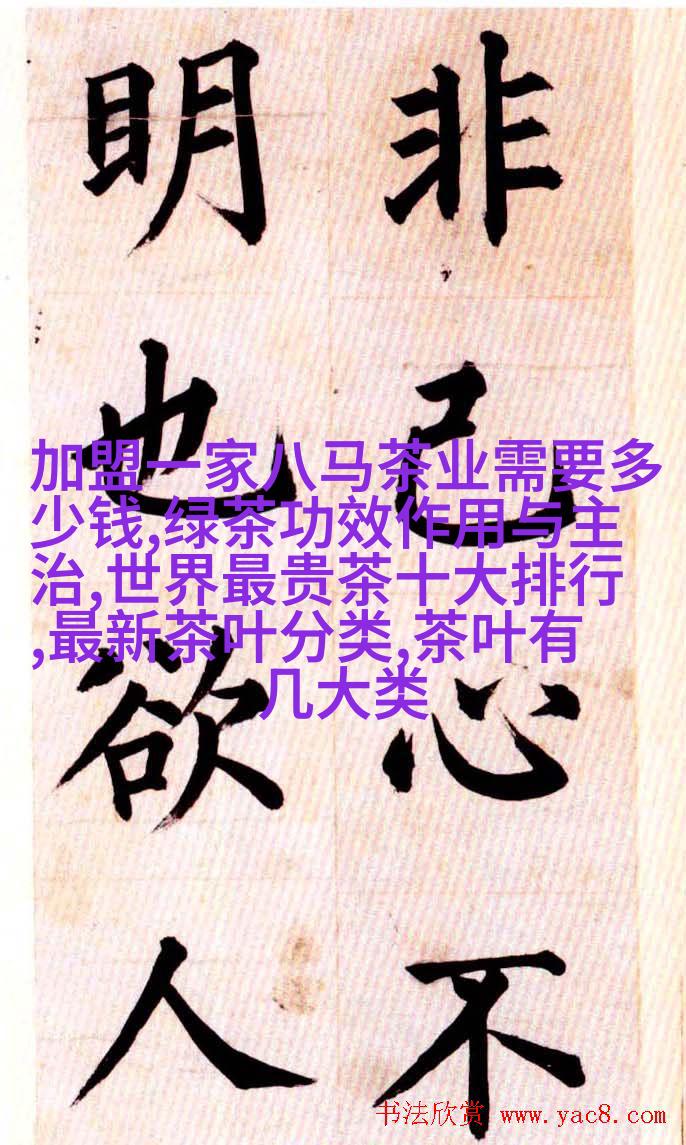 非己心不
明也欲人
加盟一家八马茶业需要多
少钱,绿茶功效作用与主
治,世界最贵茶十大排行
,最新茶叶分类,茶叶有
几大类
书法欣赏 www.yac8.com